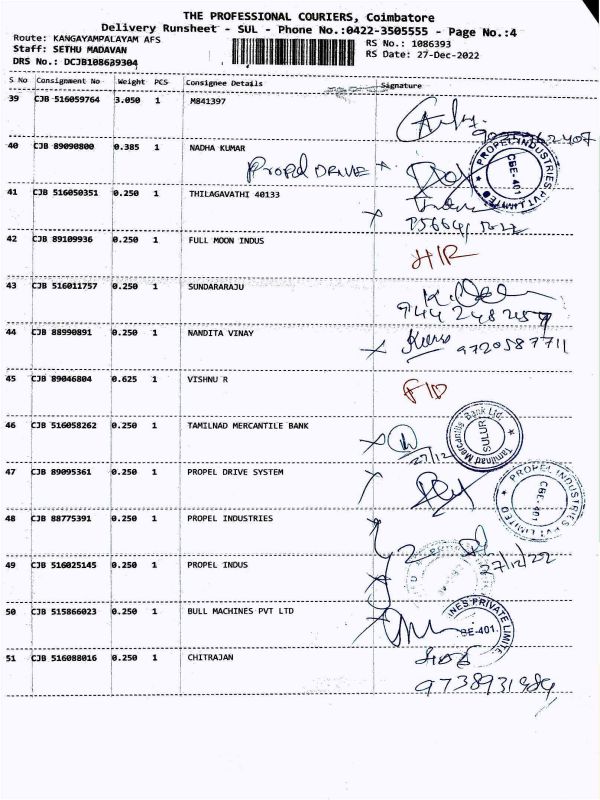 THE PROFESSIONAL COURIERS, Coimbatore
Delivery Runsheet - SUL - Phone No.:0422-3505555 - Page No.:4
Route: KANGAYAMPALAYAM AFS
Staff: SETHU MADAVAN
DRS No.: DCJB108639304
RS No.: 1086393
RS Date: 27-Dec-2022
S No Consignment No Weight PCS Consignee Details Signature
39 CJB 516059764 3.050 1 M841397
40 CJB 89090800 0.385 1 NADHA KUMAR
Propel DRIVE
PROPEL INDUSTRIES PVT LIMITED CBE-401
41 CJB 516050351 0.250 1 THILAGAVATHI 40133
42 CJB 89109936 0.250 1 FULL MOON INDUS
H/R
43 CJB 516011757 0.250 1 SUNDARARAJU
44 CJB 88990891 0.250 1 NANDITA VINAY
9720587711
45 CJB 89046804 0.625 1 VISHNU R
46 CJB 516058262 0.250 1 TAMILNAD MERCANTILE BANK
27/12
Tamilnad Mercantile Bank Ltd. SULUR
47 CJB 89095361 0.250 1 PROPEL DRIVE SYSTEM
PROPEL INDUSTRIES PVT LIMITED CBE-401
48 CJB 88775391 0.250 1 PROPEL INDUSTRIES
49 CJB 516025145 0.250 1 PROPEL INDUS
27/12/22
50 CJB 515866023 0.250 1 BULL MACHINES PVT LTD
INES PRIVATE LIMITE
BE-401.
51 CJB 516088016 0.250 1 CHITRAJAN